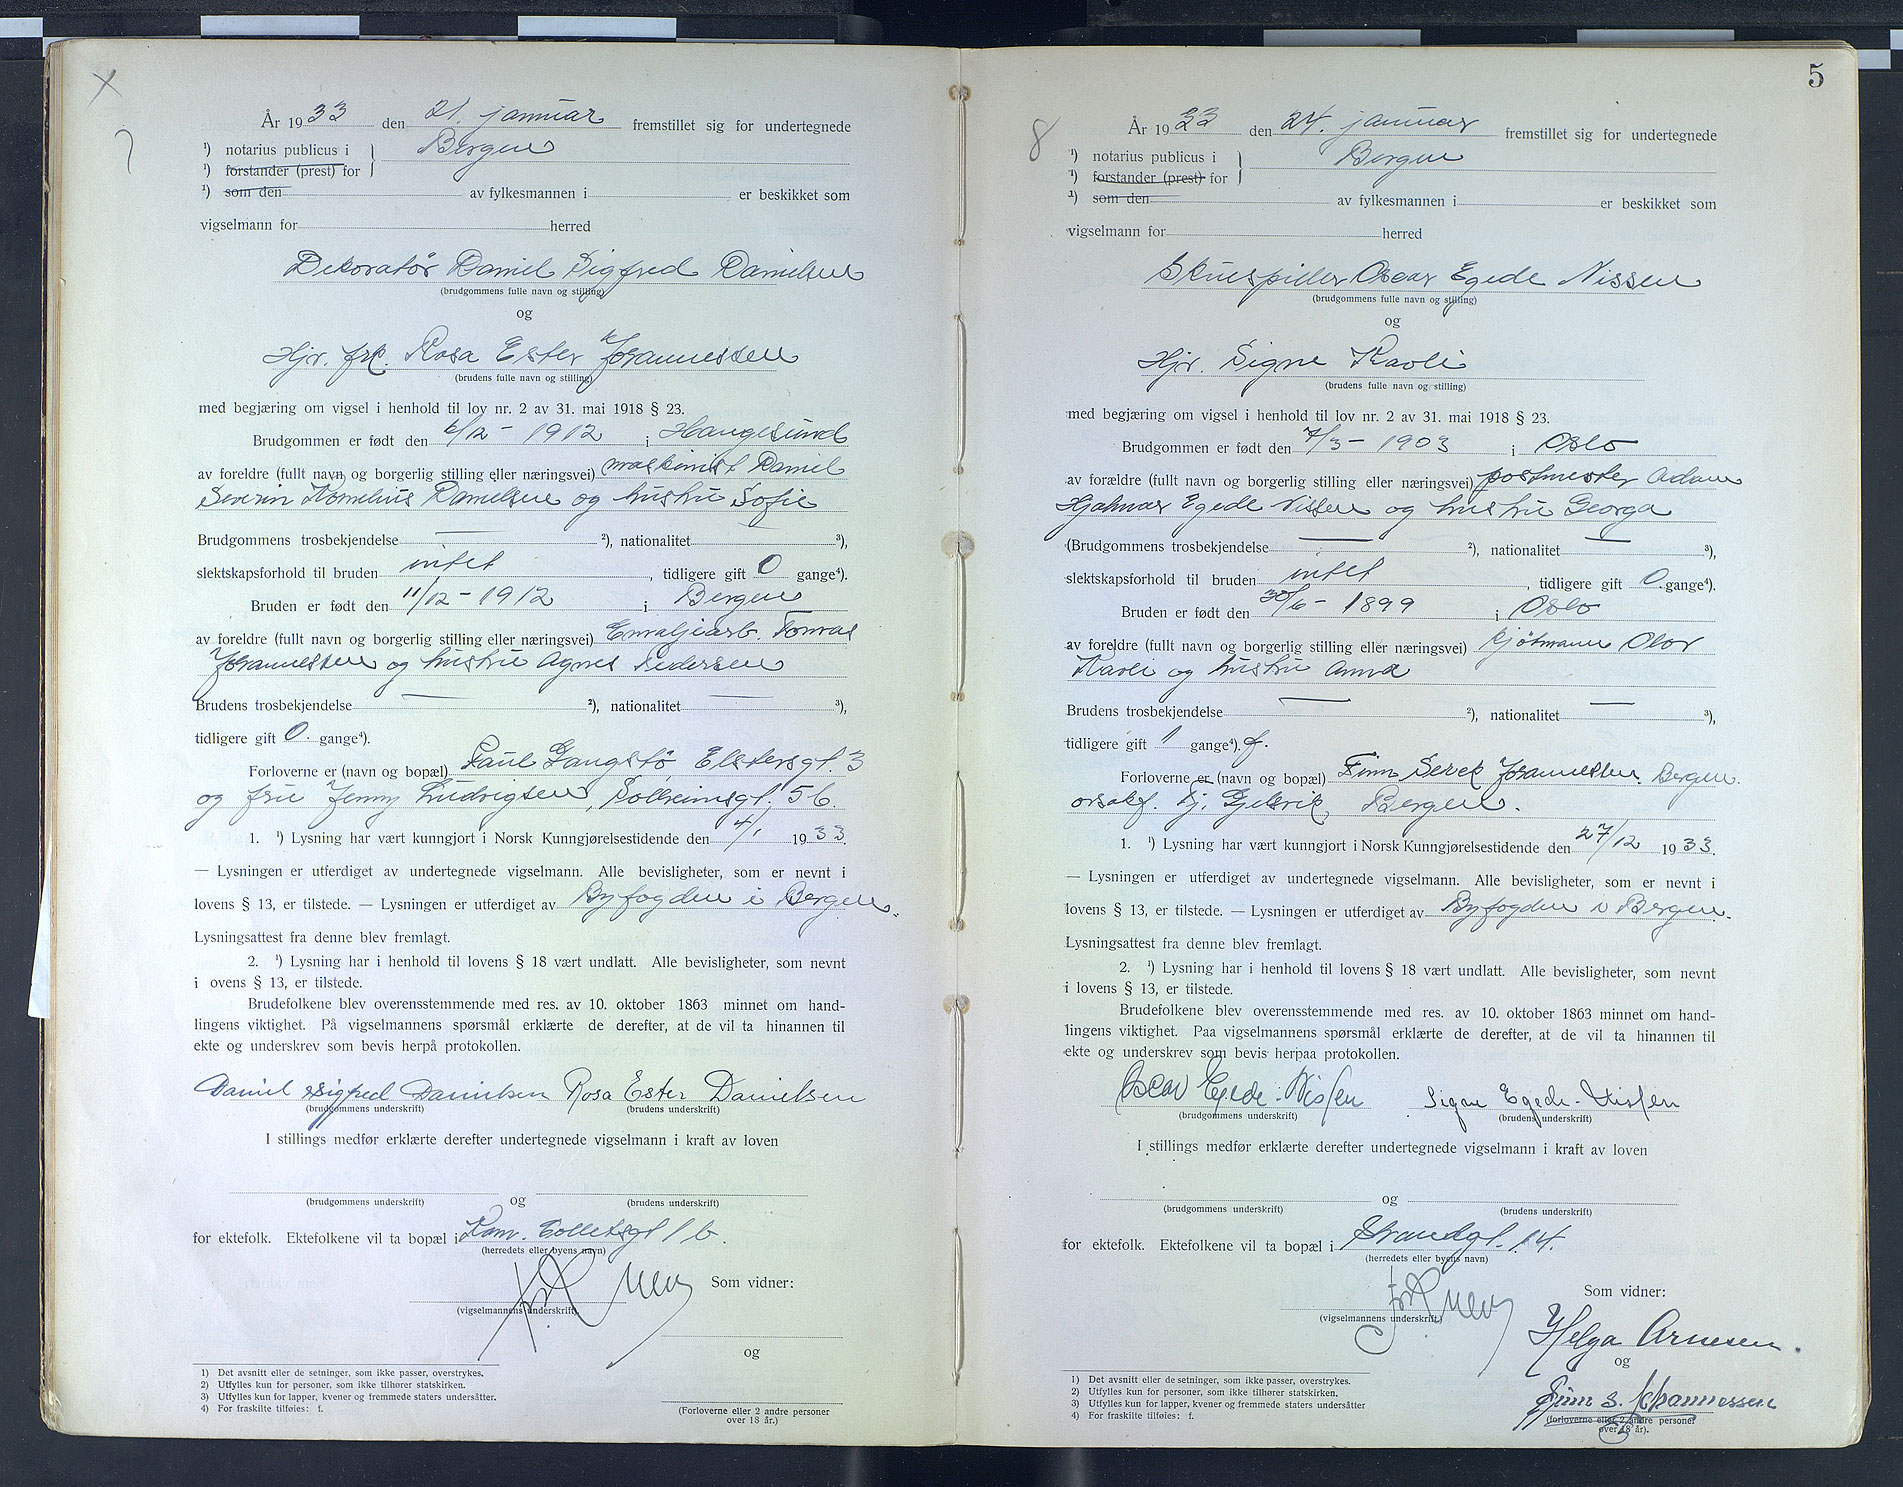 År 1933 den 21. januar fremstillet sig for undertegnede
¹) notarius publicus i } Bergen
¹) forstander (prest) for
¹) som den av fylkesmannen i er beskikket som
vigselmann for herred
Dekoratør Daniel Sigfred Danielsen
(brudgommens fulle navn og stilling)
og
Hjv. frk. Rosa Ester Johannessen
(brudens fulle navn og stilling)
med begjæring om vigsel i henhold til lov nr. 2 av 31. mai 1918 § 23.
Brudgommen er født den 6/12 - 1912 i Haugesund
av foreldre (fullt navn og borgerlig stilling eller næringsvei) maskinist Daniel
Severin Kornelius Danielsen og hustru Sofie
Brudgommens trosbekjendelse — ²), nationalitet ³),
slektskapsforhold til bruden intet, tidligere gift 0 gange⁴).
Bruden er født den 11/12 - 1912 i Bergen
av foreldre (fullt navn og borgerlig stilling eller næringsvei) Emaljearb. Tomas
Johannessen og hustru Agnes Pedersen
Brudens trosbekjendelse — ²), nationalitet — ³),
tidligere gift 0. gange⁴).
Forloverne er (navn og bopæl) Paul Gangstø Elstersgt. 3
og fru Jenny Ludvigsen, Solheimsgt. 56.
1. ¹) Lysning har vært kunngjort i Norsk Kunngjørelsestidende den 4/1 1933.
— Lysningen er utferdiget av undertegnede vigselmann. Alle bevisligheter, som er nevnt i
lovens § 13, er tilstede. — Lysningen er utferdiget av Byfogden i Bergen.
Lysningsattest fra denne blev fremlagt.
2. ¹) Lysning har i henhold til lovens § 18 vært undlatt. Alle bevisligheter, som nevnt
i ovens § 13, er tilstede.
Brudefolkene blev overensstemmende med res. av 10. oktober 1863 minnet om hand-
lingens viktighet. På vigselmannens spørsmål erklærte de derefter, at de vil ta hinannen til
ekte og underskrev som bevis herpå protokollen.
Daniel Sigfred Danielsen Rosa Ester Danielsen
(brudgommens underskrift) (brudens underskrift)
I stillings medfør erklærte derefter undertegnede vigselmann i kraft av loven
og
(brudgommens underskrift) (brudens underskrift)
for ektefolk. Ektefolkene vil ta bopæl i Kam. Colletsgt 1 b.
(herredets eller byens navn)
Som vidner:
(vigselmannens underskrift).
og
1) Det avsnitt eller de setninger, som ikke passer, overstrykes.
2) Utfylles kun for personer, som ikke tilhører statskirken.
3) Utfylles kun for lapper, kvener og fremmede staters undersåtter.
4) For fraskilte tilføies: f.
(Forloverne eller 2 andre personer
over 18 år.)
5
8
År 1933 den 24. januar fremstillet sig for undertegnede
¹) notarius publicus i } Bergen
¹) forstander (prest) for
¹) som den av fylkesmannen i er beskikket som
vigselmann for herred
Skuespiller Oscar Egede Nissen
(brudgommens fulle navn og stilling)
og
Hjv. Signe Kavli
(brudens fulle navn og stilling)
med begjæring om vigsel i henhold til lov nr. 2 av 31. mai 1918 § 23.
Brudgommen er født den 7/3 - 1903 i Oslo
av forældre (fullt navn og borgerlig stilling eller næringsvei) postmester Adam
Hjalmar Egede Nissen og hustru Georga
(Brudgommens trosbekjendelse — ²), nationalitet — ³),
slektskapsforhold til bruden intet, tidligere gift 0. gange⁴).
Bruden er født den 30/6 - 1899 i Oslo
av foreldre (fullt navn og borgerlig stilling eller næringsvei) kjøbmann Olor
Kavli og hustru Anna
Brudens trosbekjendelse — ²), nationalitet — ³),
tidligere gift 1 gange⁴). f.
Forloverne er (navn og bopæl) Finn Johannessen. Bergen.
Bergen.
1. ¹) Lysning har vært kunngjort i Norsk Kunngjørelsestidende den 27/12 1933.
— Lysningen er utferdiget av undertegnede vigselmann. Alle bevisligheter, som er nevnt i
lovens § 13, er tilstede. — Lysningen er utferdiget av Byfogden i Bergen.
Lysningsattest fra denne blev fremlagt.
2. ¹) Lysning har i henhold til lovens § 18 vært undlatt. Alle bevisligheter, som nevnt
i lovens § 13, er tilstede.
Brudefolkene blev overensstemmende med res. av 10. oktober 1863 minnet om hand-
lingens viktighet. Paa vigselmannens spørsmål erklærte de derefter, at de vil ta hinannen til
ekte og underskrev som bevis herpaa protokollen.
Oscar Egede-Nissen Signe Egede-Nissen
(brudgommens underskrift) (brudens underskrift)
I stillings medfør erklærte derefter undertegnede vigselmann i kraft av loven
og
(brudgommens underskrift) (brudens underskrift)
for ektefolk. Ektefolkene vil ta bopæl i Strandgt. 14.
(herredets eller byens navn)
Som vidner:
(vigselmannens underskrift.)
Helga Arnesen.
og
Finn S. Johannessen
1) Det avsnitt eller de setninger, som ikke passer, overstrykes.
2) Utfylles kun for personer, som ikke tilhører statskirken.
3) Utfylles kun for lapper, kvener og fremmede staters undersåtter
4) For fraskilte tilføies: f.
(forloverne eller 2 andre personer
over 18 år).